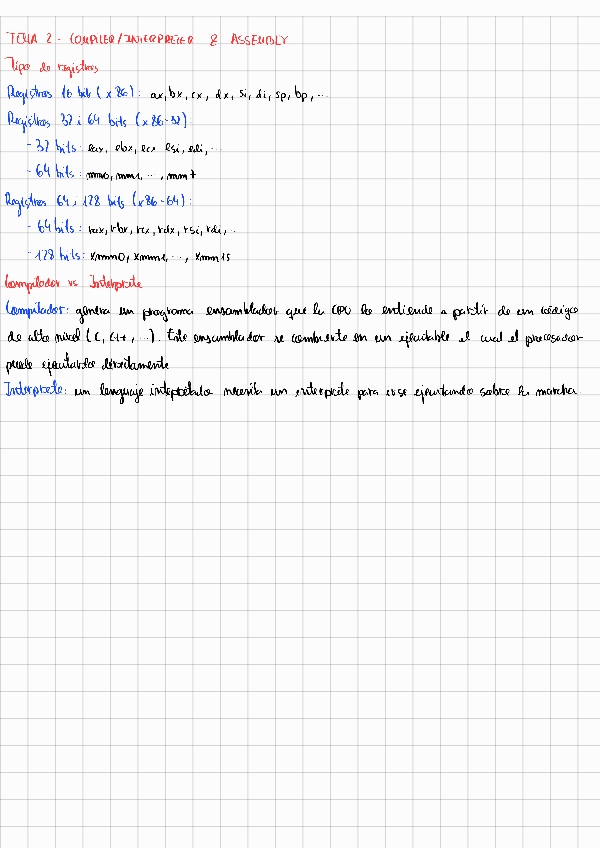 TEMA 2 - COMPILER/INTERPRETER & ASSEMBLY
Tipo de registros
Registros 16 bit (x86): ax, bx, cx, dx, si, di, sp, bp, ...
Registros 32 i 64 bits (x86-32)
- 32 bits: eax, ebx, ecx esi, edi, ...
- 64 bits: mm0, mm1, ..., mm7
Registros 64 i 128 bits (x86-64):
- 64 bits: rax, rbx, rcx, rdx, rsi, rdi, ..
- 128 bits: xmm0, xmm1, ..., xmm15
Compilador vs Interprete
Compilador: genera un programa ensamblador que la CPU lo entiende a partir de un código
de alto nivel (C, C++, ...). Este ensamblador se convierte en un ejecutable el cual el procesador
puede ejecutarlo directamente
Interprete: un lenguaje interpretado necesita un interprete para irse ejecutando sobre la marcha